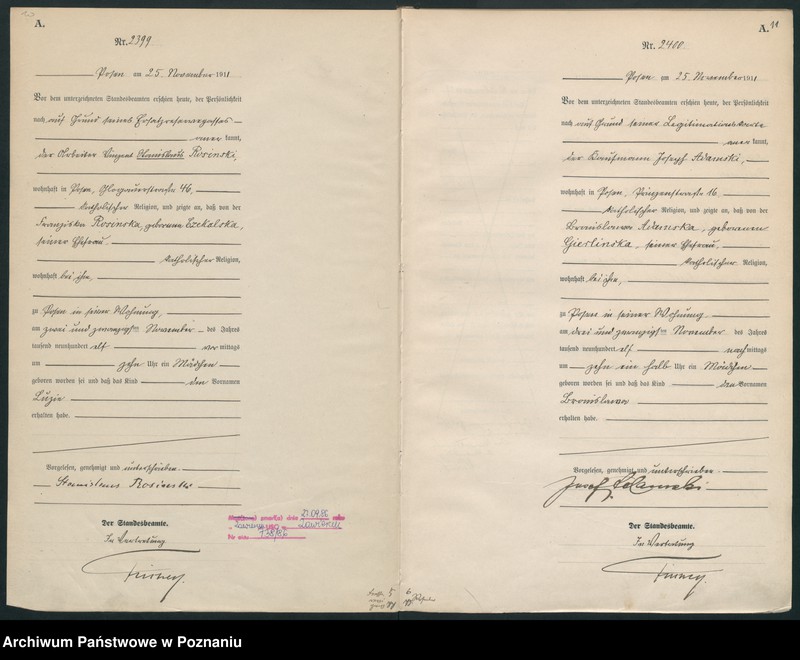 A.
Nr. 2399
Posen am 25. November 1911
Vor dem unterzeichneten Standesbeamten erschien heute, der Persönlichkeit
nach auf Grund seines Ersatzreservepasses
kannt,
der Arbeiter Vinzent Stanislaus Rosinski,
wohnhaft in Posen, Glogauerstraße 46,
katholischer Religion, und zeigte an, daß von der
Franziska Rosinska, geborenen
seiner Ehefrau,
katholischer Religion,
wohnhaft bei ihm,
zu Posen in seiner Wohnung,
am zwei und zwanzigsten November des Jahres
tausend neunhundert elf vormittags
um zehn Uhr ein Mädchen
geboren worden sei und daß das Kind den Vornamen
Luzie
erhalten habe.
Vorgelesen, genehmigt und unterschrieben
Stanislaus Rosinski
Der Standesbeamte.
In Vertretung
A. 11
Nr. 2400
Posen am 25. November 1911
Vor dem unterzeichneten Standesbeamten erschien heute, der Persönlichkeit
nach auf Grund seiner Legitimationskarte
kannt,
der Kaufmann Joseph Adamski,
wohnhaft in Posen, Prinzenstraße 16,
katholischer Religion, und zeigte an, daß von der
Bronislawa Adamska, geborenen
Gierlinska, seiner Ehefrau,
katholischer Religion,
wohnhaft bei ihm,
zu Posen in seiner Wohnung
am drei und zwanzigsten November des Jahres
tausend neunhundert elf nachmittags
um zehn ein halb Uhr ein Mädchen
geboren worden sei und daß das Kind den Vornamen
Bronislawa
erhalten habe.
Vorgelesen, genehmigt und unterschrieben
Der Standesbeamte.
In Vertretung
Archiwum Państwowe w Poznaniu